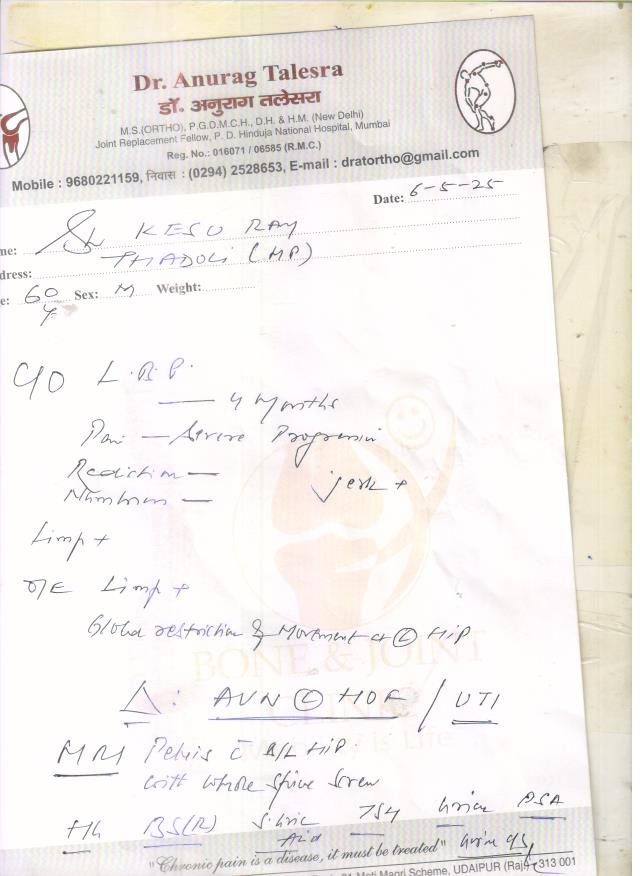 Dr. Anurag Talesra
डॉ. अनुराग तलेसरा
M.S.(ORTHO), P.G.D.M.C.H., D.H. & H.M. (New Delhi)
Joint Replacement Fellow, P. D. Hinduja National Hospital, Mumbai
Reg. No.: 016071 / 06585 (R.M.C.)
Mobile : 9680221159, निवास : (0294) 2528653, E-mail : dratortho@gmail.com
Date: 6-5-25
me: Sh KESU RAM
dress: (MP)
e: 60 y Sex: M Weight:
C/O L.B.P.
4 months
Pain — Severe Progressive
Radiation —
Numbness — jerk +
Limp +
O/E Limp +
Global restriction of Movement at (L) HIP
BONE & JOINT
Δ: AVN (L) HOF / UTI
is Life
MRI Pelvis c̄ B/L HIP
with whole spine screen
Hb BS(R) S. Uric Acid TSH Urine PSA
Urine
"Chronic pain is a disease, it must be treated"
Moti Magri Scheme, UDAIPUR (Raj.) 313 001